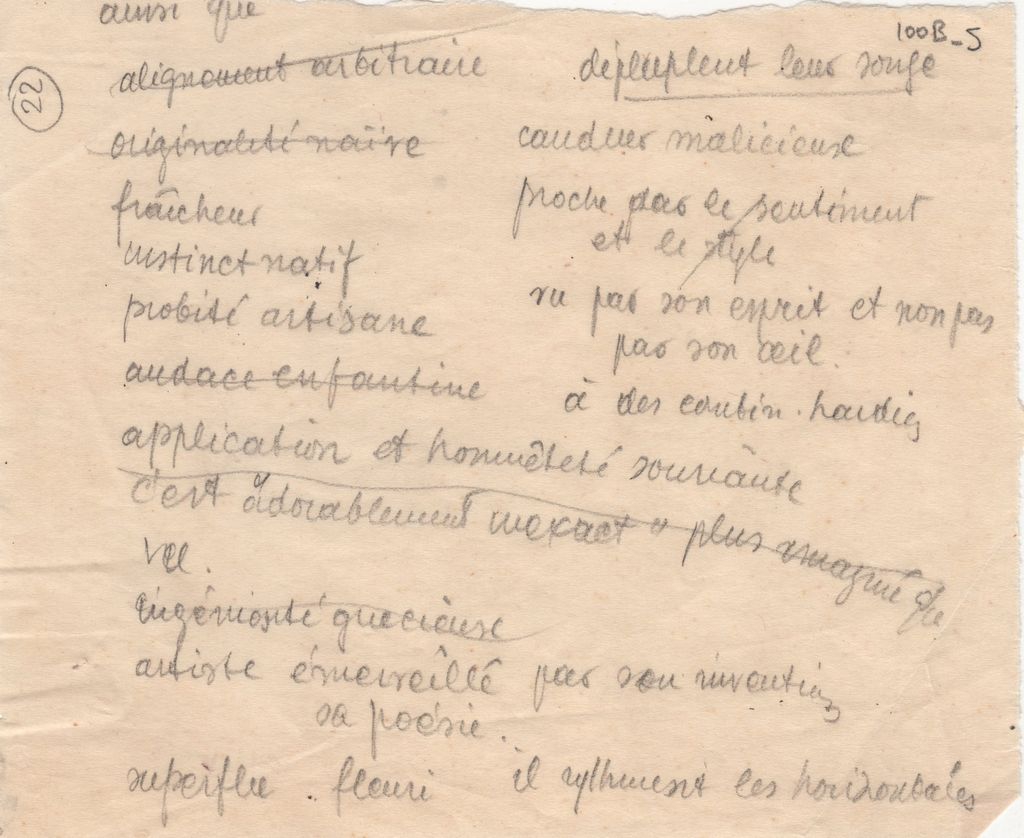 ainsi que
100B_5
22
alignement arbitraire
dépeuplent leur songe
originalité naïve
candeur malicieuse
fraîcheur
proche par le sentiment
et le style
instinct natif
vu par son esprit et non pas
par son œil.
probité artisane
audace enfantine
à des combin. hardies
application et honnêteté souriante
c'est "adorablement inexact" plus imaginé que
vu.
ingéniosité gracieuse
artiste émerveillé par son invention
sa poésie.
superflu fleuri il rythment les horizontales